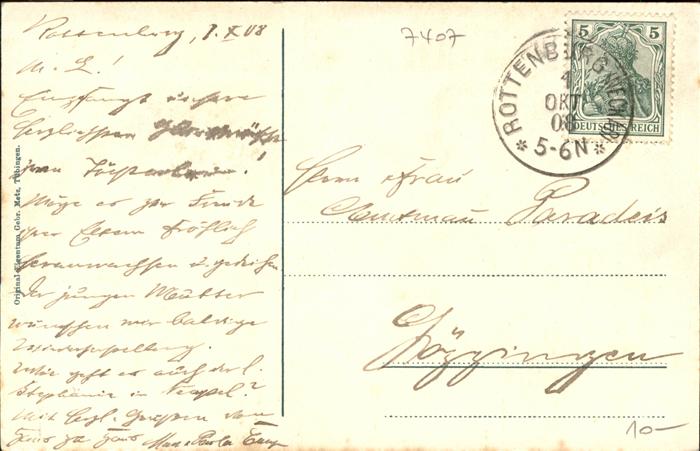 Rottenburg, 7. X 08
M. L!
Empfangt unsere
herzlichsten Glückwünsche
zum Töchterlein!
Möge es zur Freude
der Eltern fröhlich
heranwachsen u. gedeihen
Der jungen Mutter
wünschen wir baldige
Wiederherstellung.
Wie geht es auch der l.
Stephanie in Neapel?
Mit herzl. Grüßen von
Haus zu Haus Max u. Paula
Original-Eigentum Gebr. Metz, Tübingen.
7407
5 5
DEUTSCHES REICH
ROTTENBURG (NECKAR)
4
OKT
08
* 5-6N *
Herrn u. Frau
Amtmann Paradeis
10-